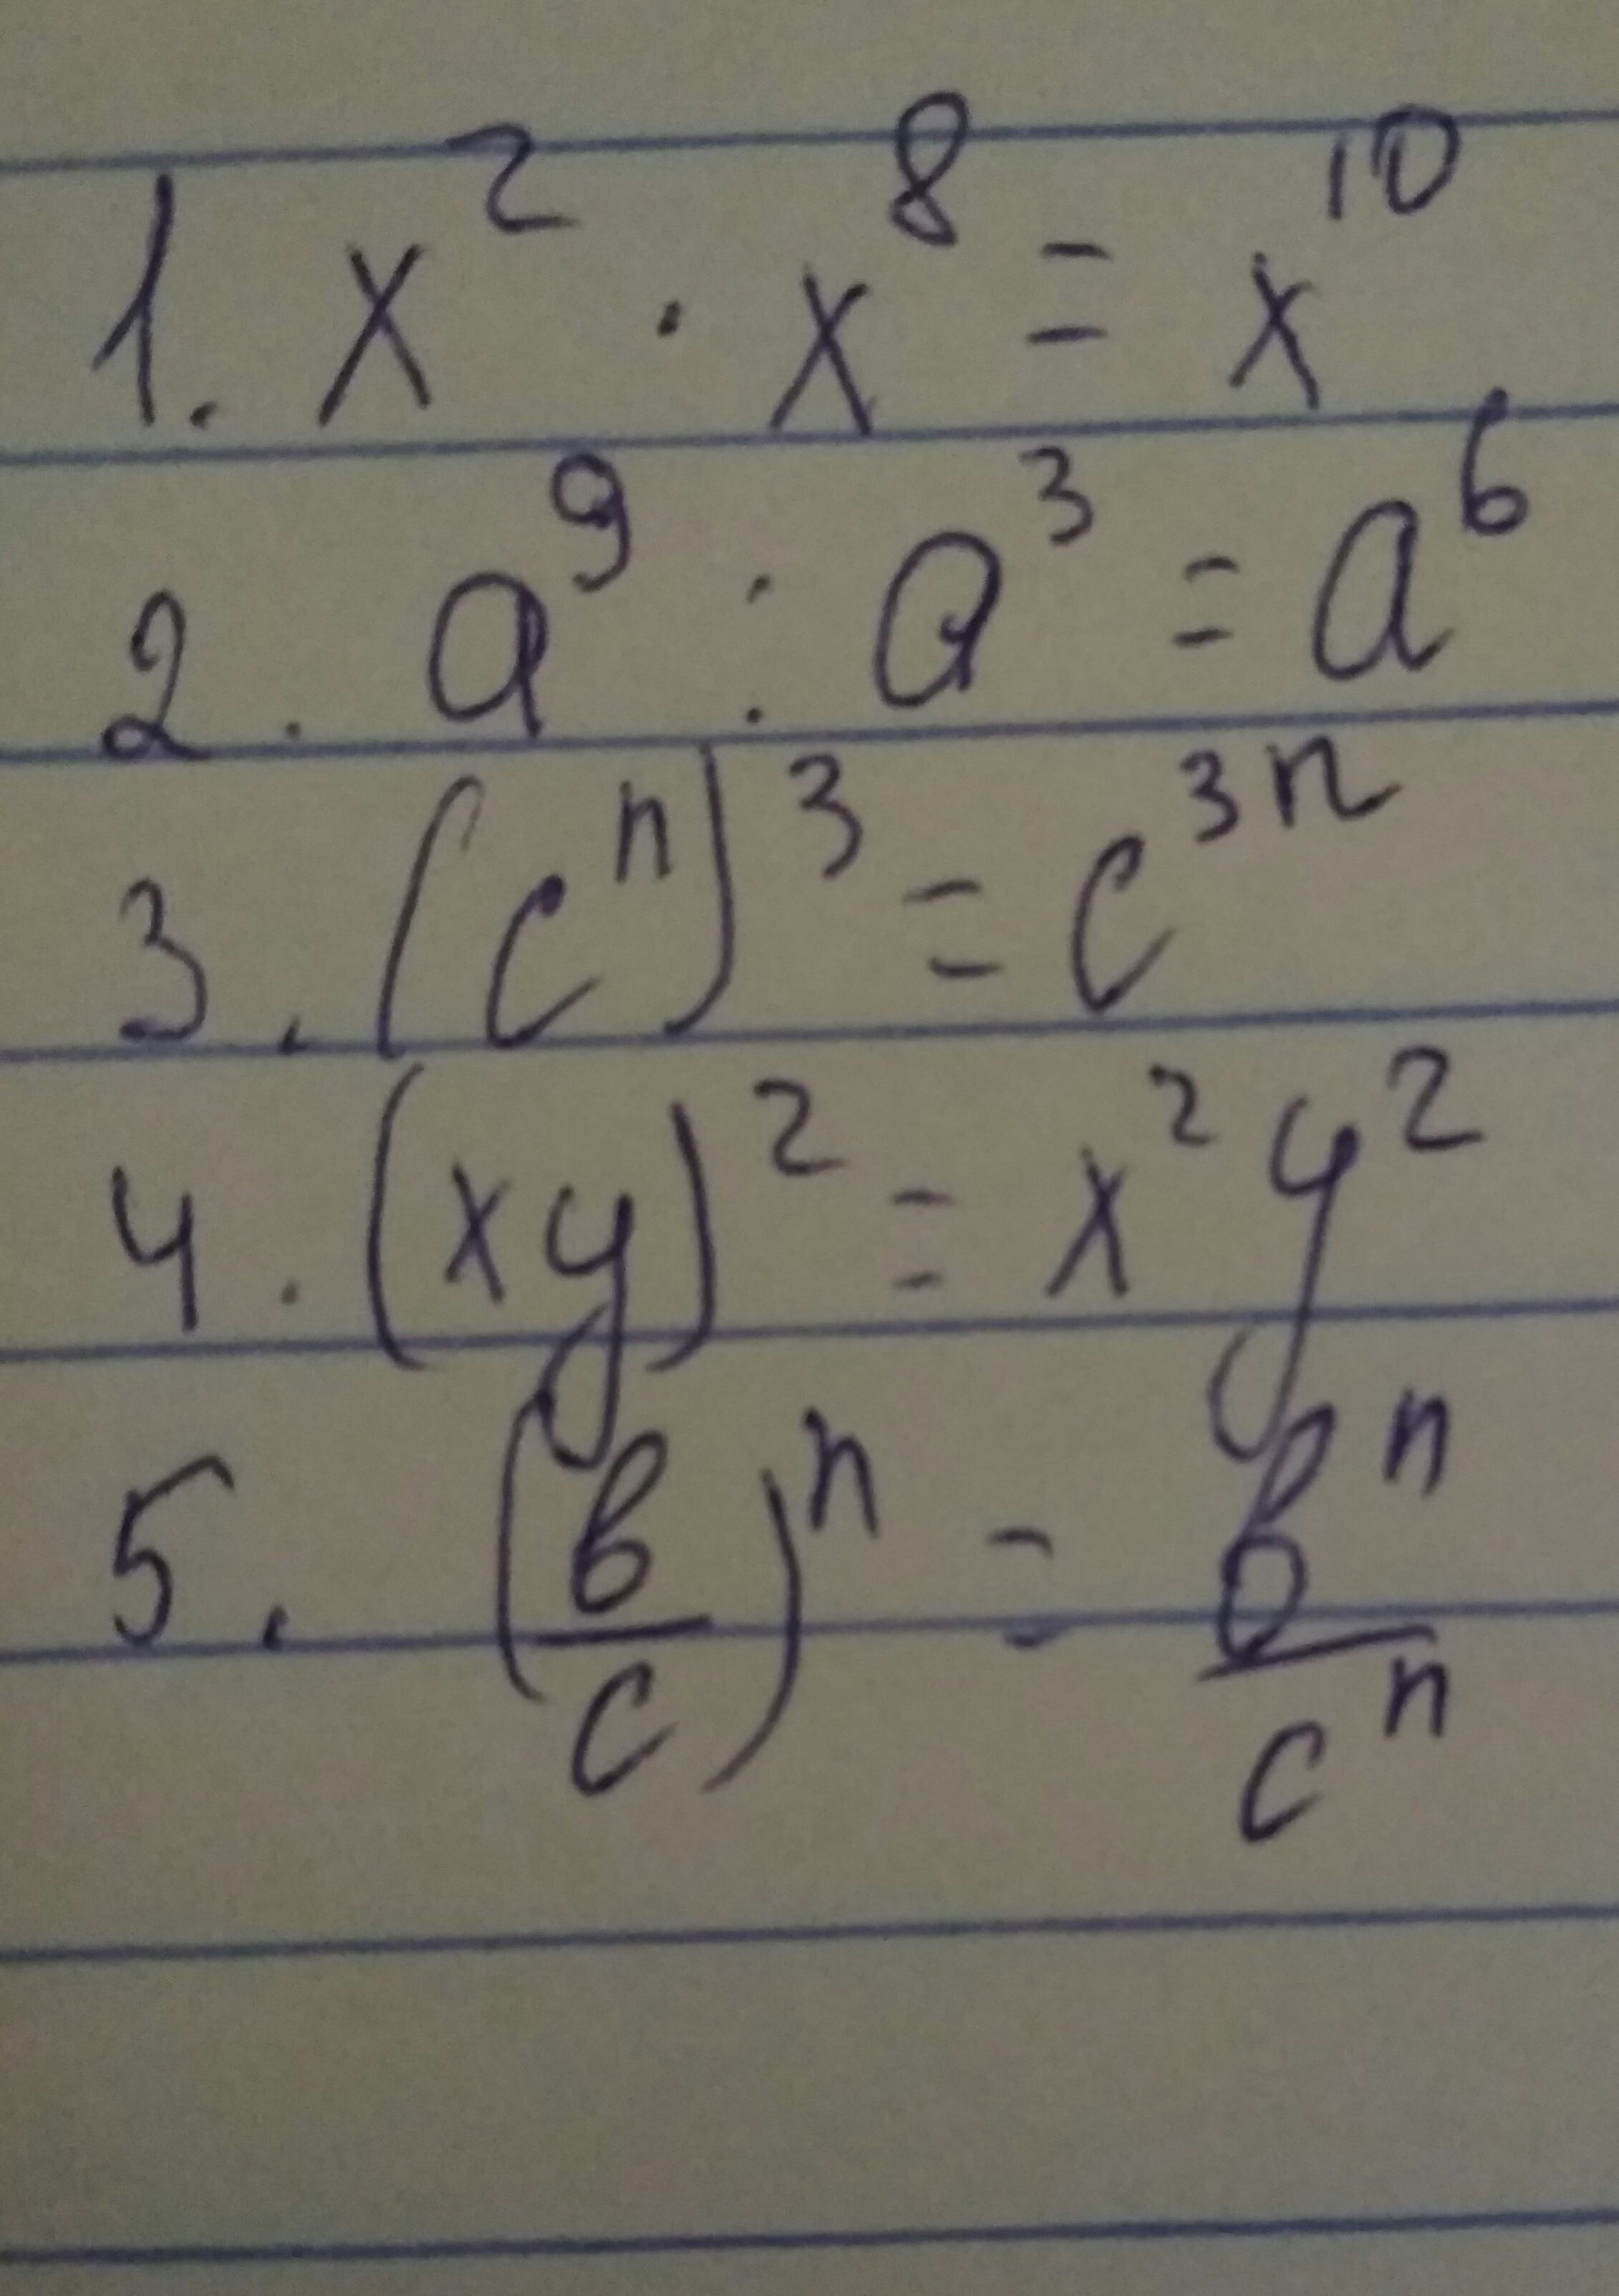 1. x² · x⁸ = x¹⁰
2. a⁹ : a³ = a⁶
3. (cⁿ)³ = c³ⁿ
4. (xy)² = x²y²
5. (b/c)ⁿ = bⁿ/cⁿ